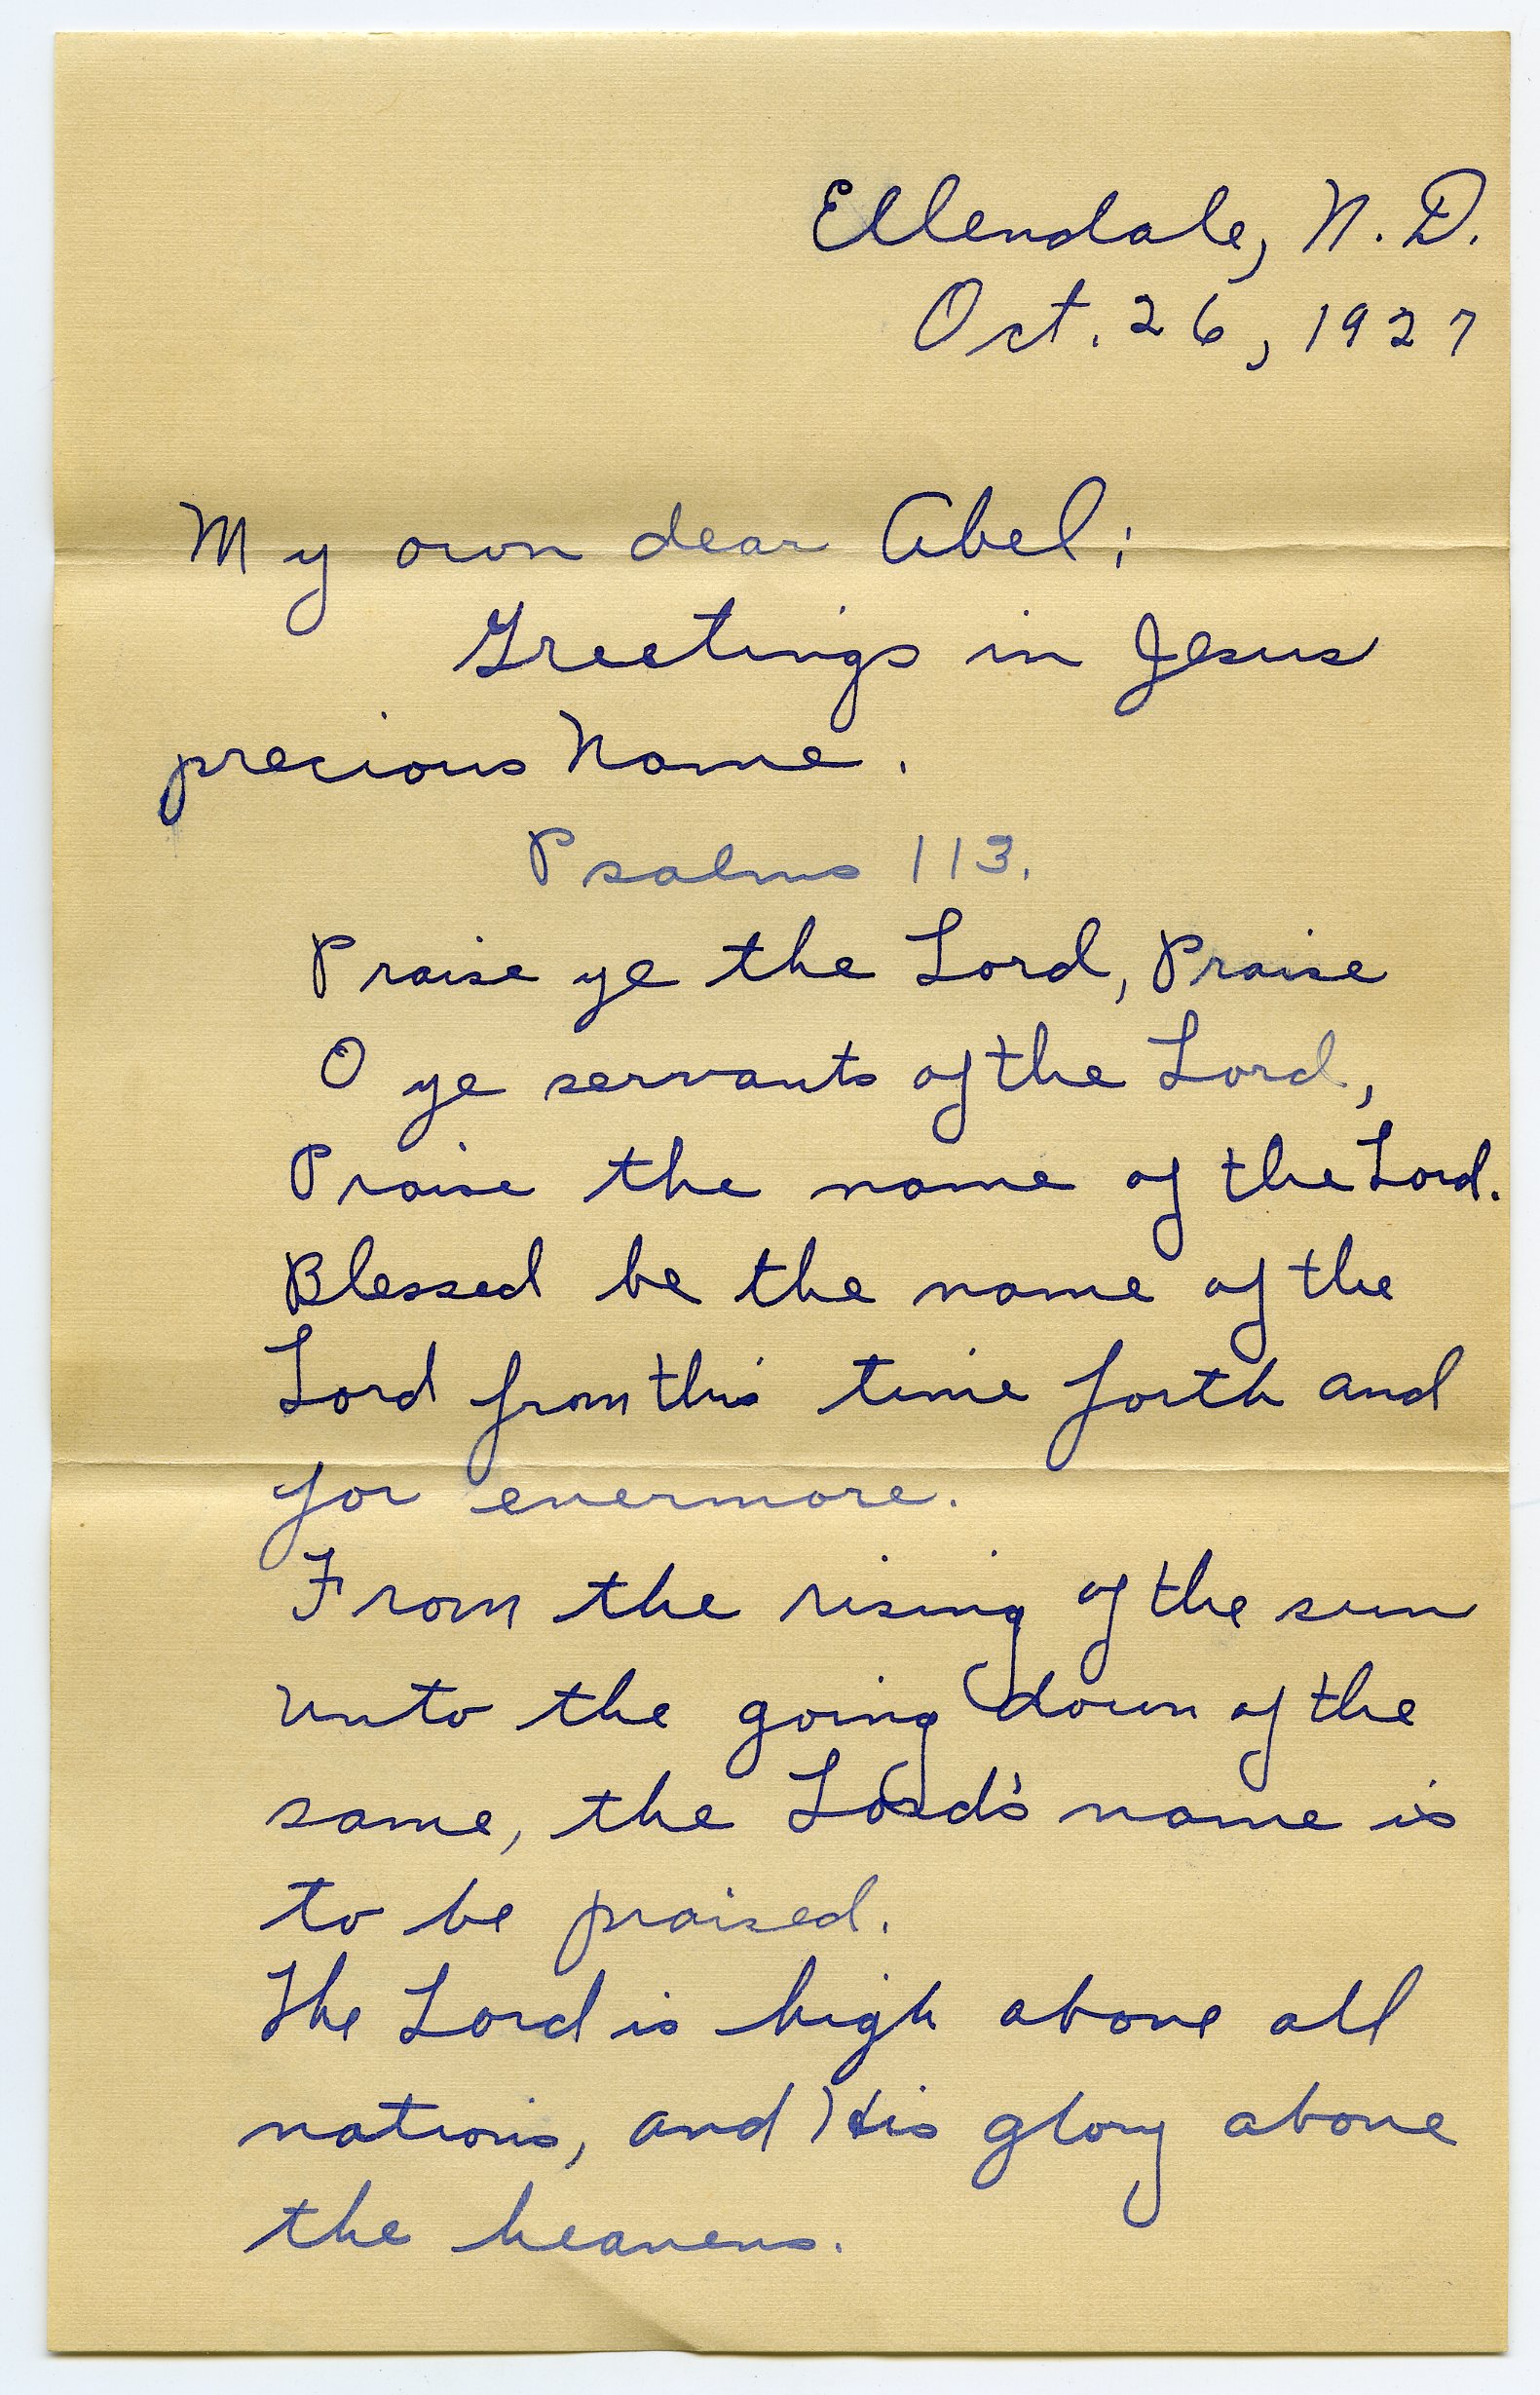 Ellendale, N. D.
Oct. 26, 1927
My own dear Abel;
Greetings in Jesus
precious Name.
Psalms 113.
Praise ye the Lord, Praise
O ye servants of the Lord,
Praise the name of the Lord.
Blessed be the name of the
Lord from this time forth and
for evermore.
From the rising of the sun
unto the going down of the
same, the Lord's name is
to be praised.
The Lord is high above all
nations, and His glory above
the heavens.